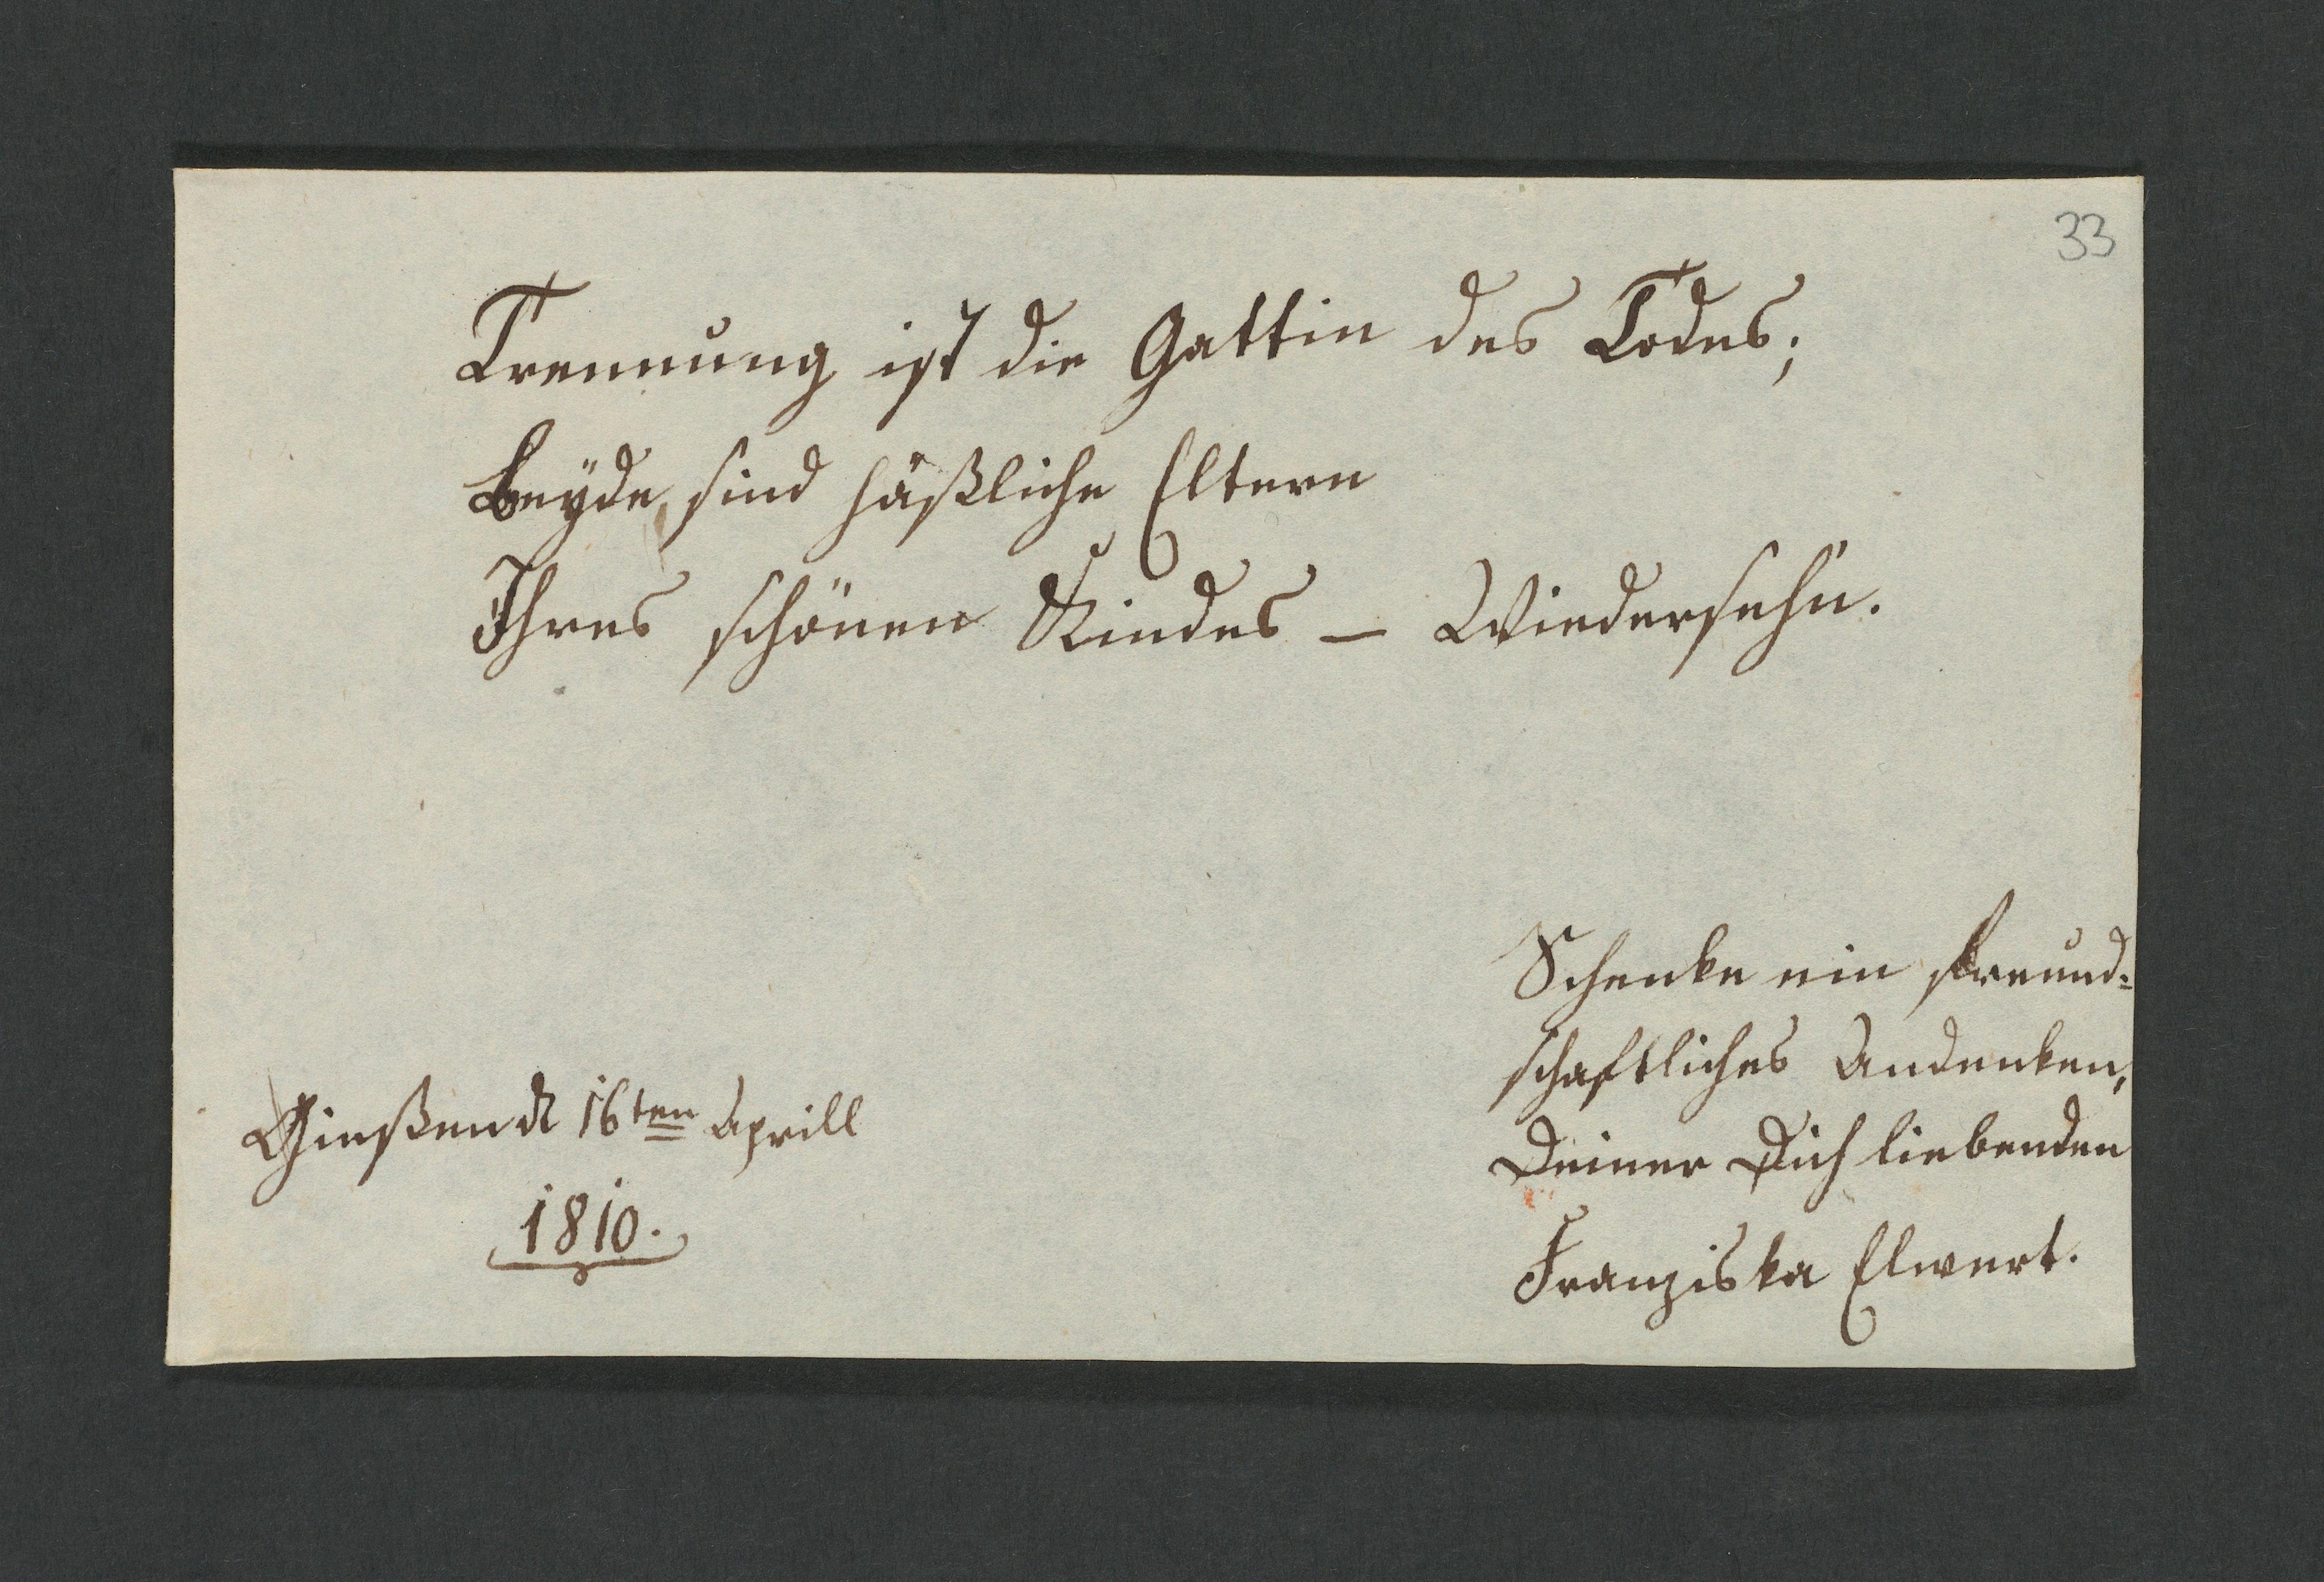 33
Trennung ist die Gattin des Todes;
Beyde, sind häßliche Eltern
Ihres schönen Kindes – Wiedersehn.
Schenke ein freund-
schaftliches Andenken,
Deiner Dich liebenden
Franziska Elwert.
Gießen d 16ten Aprill
1810.